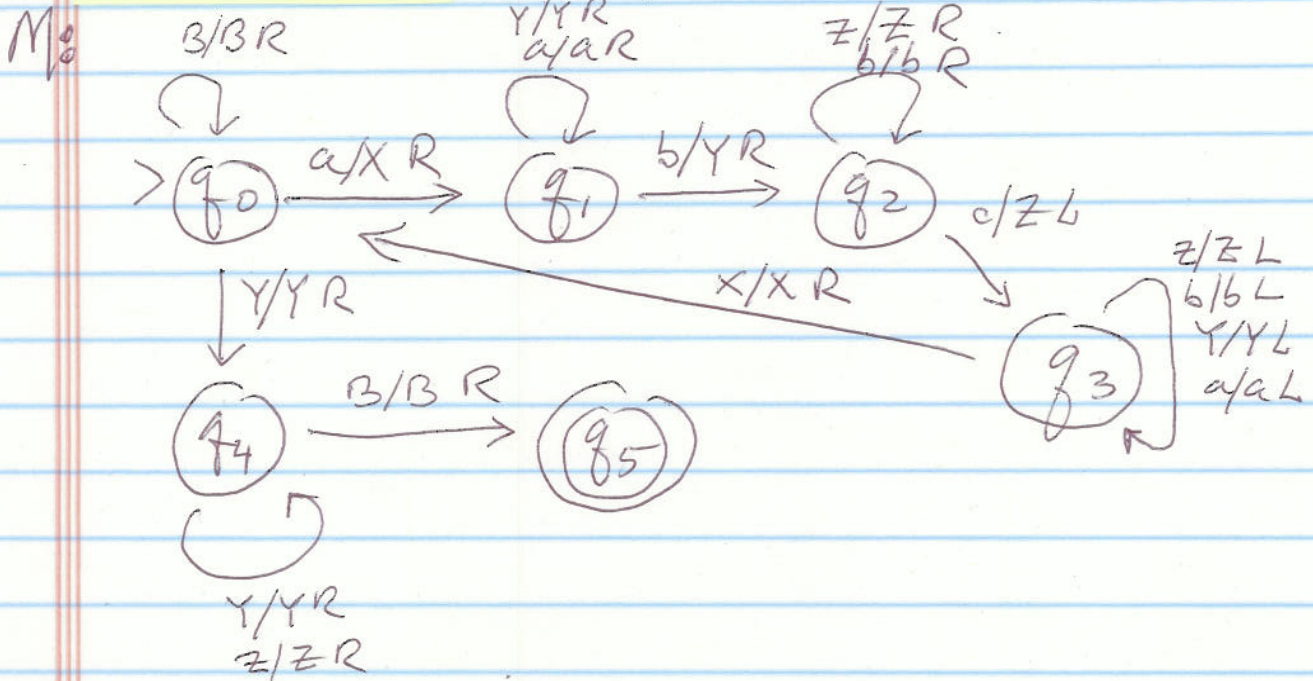 M:
B/B R
Y/Y R
a/a R
Z/Z R
b/b R
> q0
a/X R
q1
b/Y R
q2
c/Z L
Y/Y R
X/X R
Z/Z L
b/b L
Y/Y L
a/a L
q3
q4
B/B R
q5
Y/Y R
Z/Z R